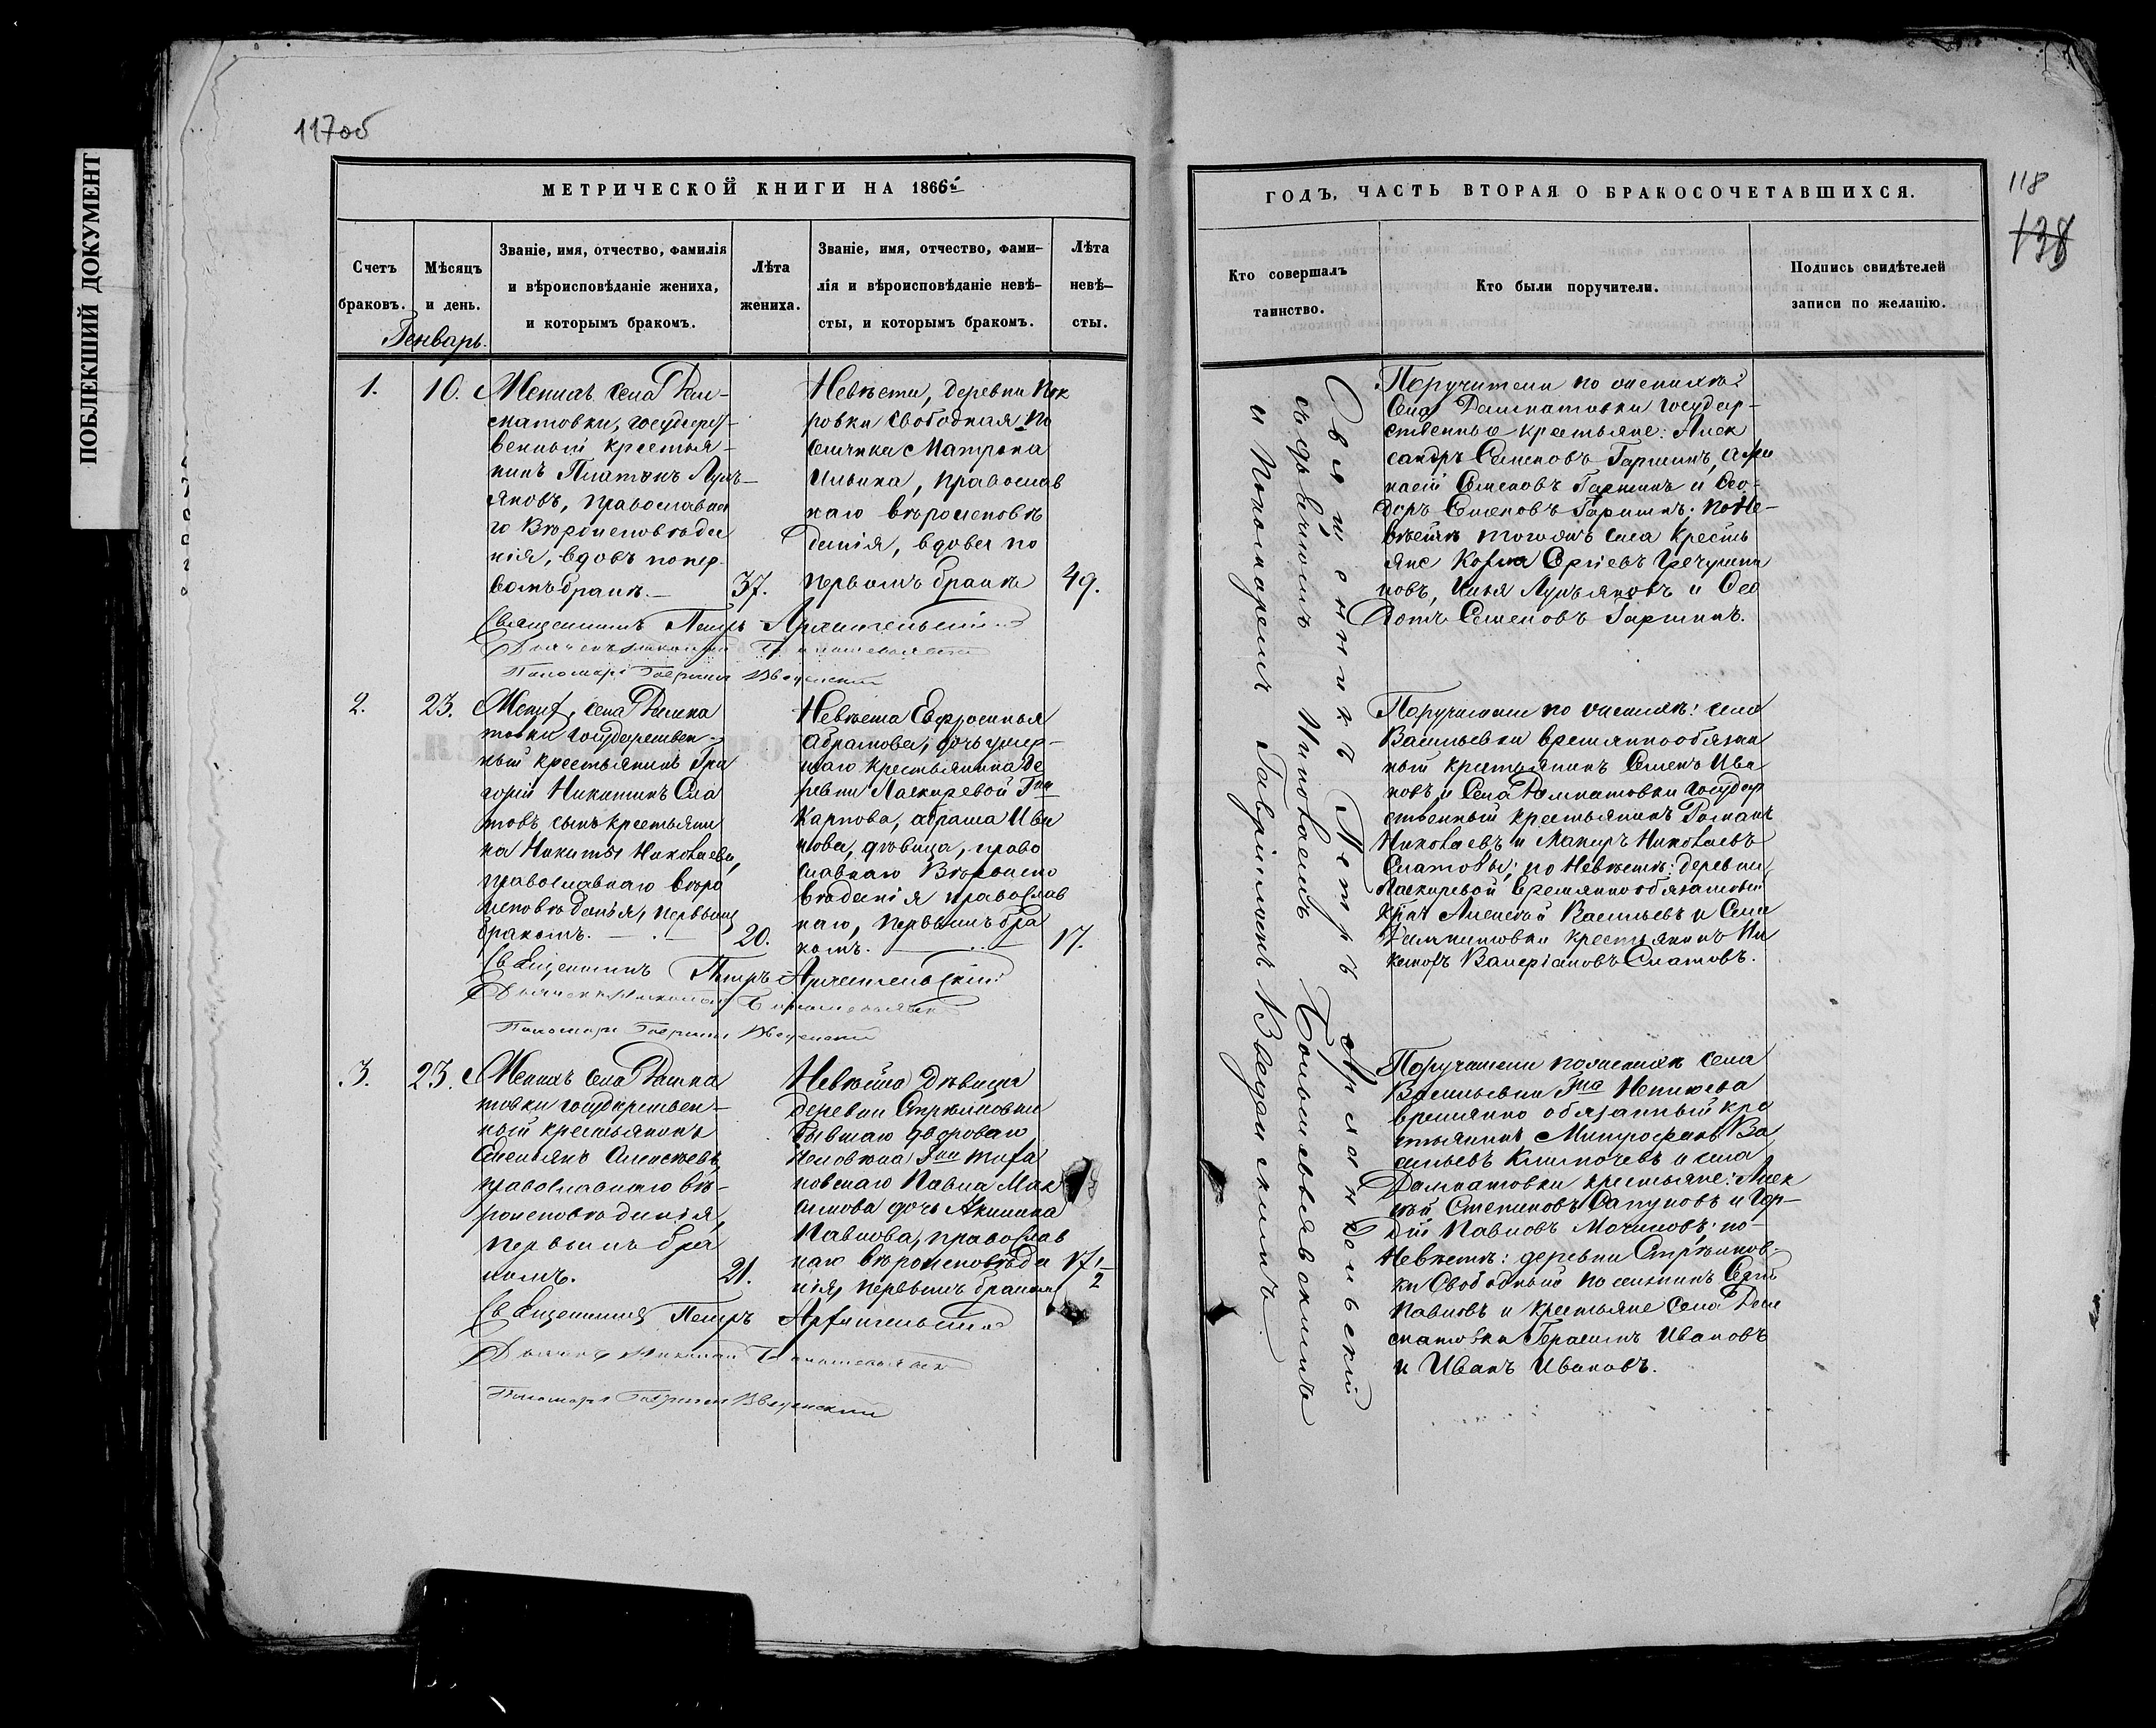 ПОБЛЕКШИЙ ДОКУМЕНТ
117об
МЕТРИЧЕСКОЙ КНИГИ НА 1866й
Счетъ
браковъ.
Мѣсяцъ
и день.
Званіе, имя, отчество, фамилія
и вѣроисповѣданіе жениха,
и которымъ бракомъ.
Лѣта
жениха.
Званіе, имя, отчество, фами-
лія и вѣроисповѣданіе невѣ-
сты, и которымъ бракомъ.
Лѣта
невѣ-
сты.
Генварь.
1.
10.
Женихъ села Дал-
матовки, государст-
венный крестья-
нинъ Платонъ Лукъ-
яновъ, православна
го вѣроисповѣда
нія, вдовъ попер
вомъ бракѣ.
37.
Невѣста, деревни Пок
ровки свободная по
селянка Матрона
Ильина, православ
наго вѣроисповѣ
данія, вдова по
первомъ бракѣ
49.
Священникъ Петръ Архангельскій
Пономарь Гавріилъ Введенскій
2.
23.
Жених, села Далма
товки государствен-
ный крестьянинъ Гри
горій Никитинъ Сла
товъ сынъ крестьяни
на Никиты Николаева,
православнаго вѣро
исповѣданія, первымъ
бракомъ.
20.
Невѣста Евфросинья
Абрамова, дочь умер-
шаго крестьянина де
ревни Ласкиревой Гна
Карпова, Абрама Ива
нова, дѣвица, право
славнаго вѣроиспо
вѣданія православ
наго, первымъ бра
комъ.
17.
Священникъ Петръ Архангельскій
Пономарь Гавріилъ Введенскій
3.
23.
Женихъ села Далма
товки государствен-
ный крестьянинъ
Емельянъ Алексѣевъ
православнаго вѣ-
роисповѣданія,
первымъ бра
комъ.
21.
Невѣста дѣвица
деревни Стрѣлковки
бывшаго двороваго
человѣка Гна
Павла Мак
симова дочь Акилина
Павлова, православ
наго вѣроисповѣда
нія, первымъ бракомъ
17 1/2
Священникъ Петръ Архангельскій
Пономарь Гавріилъ Введенскій
118
138
ГОДЪ, ЧАСТЬ ВТОРАЯ О БРАКОСОЧЕТАВШИХСЯ.
Кто совершалъ
таинство.
Кто были поручители.
Подпись свидѣтелей
записи по желанію.
Священникъ Петръ Архангельскій
съ дьячкомъ Николаемъ
и Пономаремъ Гавріиломъ Введенскимъ
Поручители по женихѣ:
села Далматовки государ-
ственные крестьяне: Алек
сандръ Семеновъ Гаршинъ,
Семеновъ Гаршинъ и Ѳео-
доръ Семеновъ Гаршинъ; по не-
вѣстѣ тогожъ села кресть
яне Козма Сергіевъ
Илья Лукъяновъ и Ѳео
дотъ Семеновъ Гаршинъ.
Поручители по женихѣ: села
Васильевки временнообязан
ный крестьянинъ Семенъ Ива
новъ и села Далматовки государ
ственный крестьянинъ Романъ
Николаевъ и Макаръ Николаевъ
Слатовы; по невѣстѣ: деревни
Ласкиревой временнообязанный
Алексѣй Васильевъ и села
Далматовки крестьянинъ
Валеріановъ Слатовъ.
Поручители по женихѣ села
Васильевки Гна
временно обязанный кре
стьянинъ Митрофанъ Ва
сильевъ и села
Далматовки крестьяне: Алек
сѣй Степановъ Сапуновъ и
Павловъ по
невѣстѣ: деревни Стрѣлков-
ки свободный поселянинъ
Павловъ и крестьяне села Дал
матовки Герасимъ Ивановъ
и Иванъ Ивановъ.